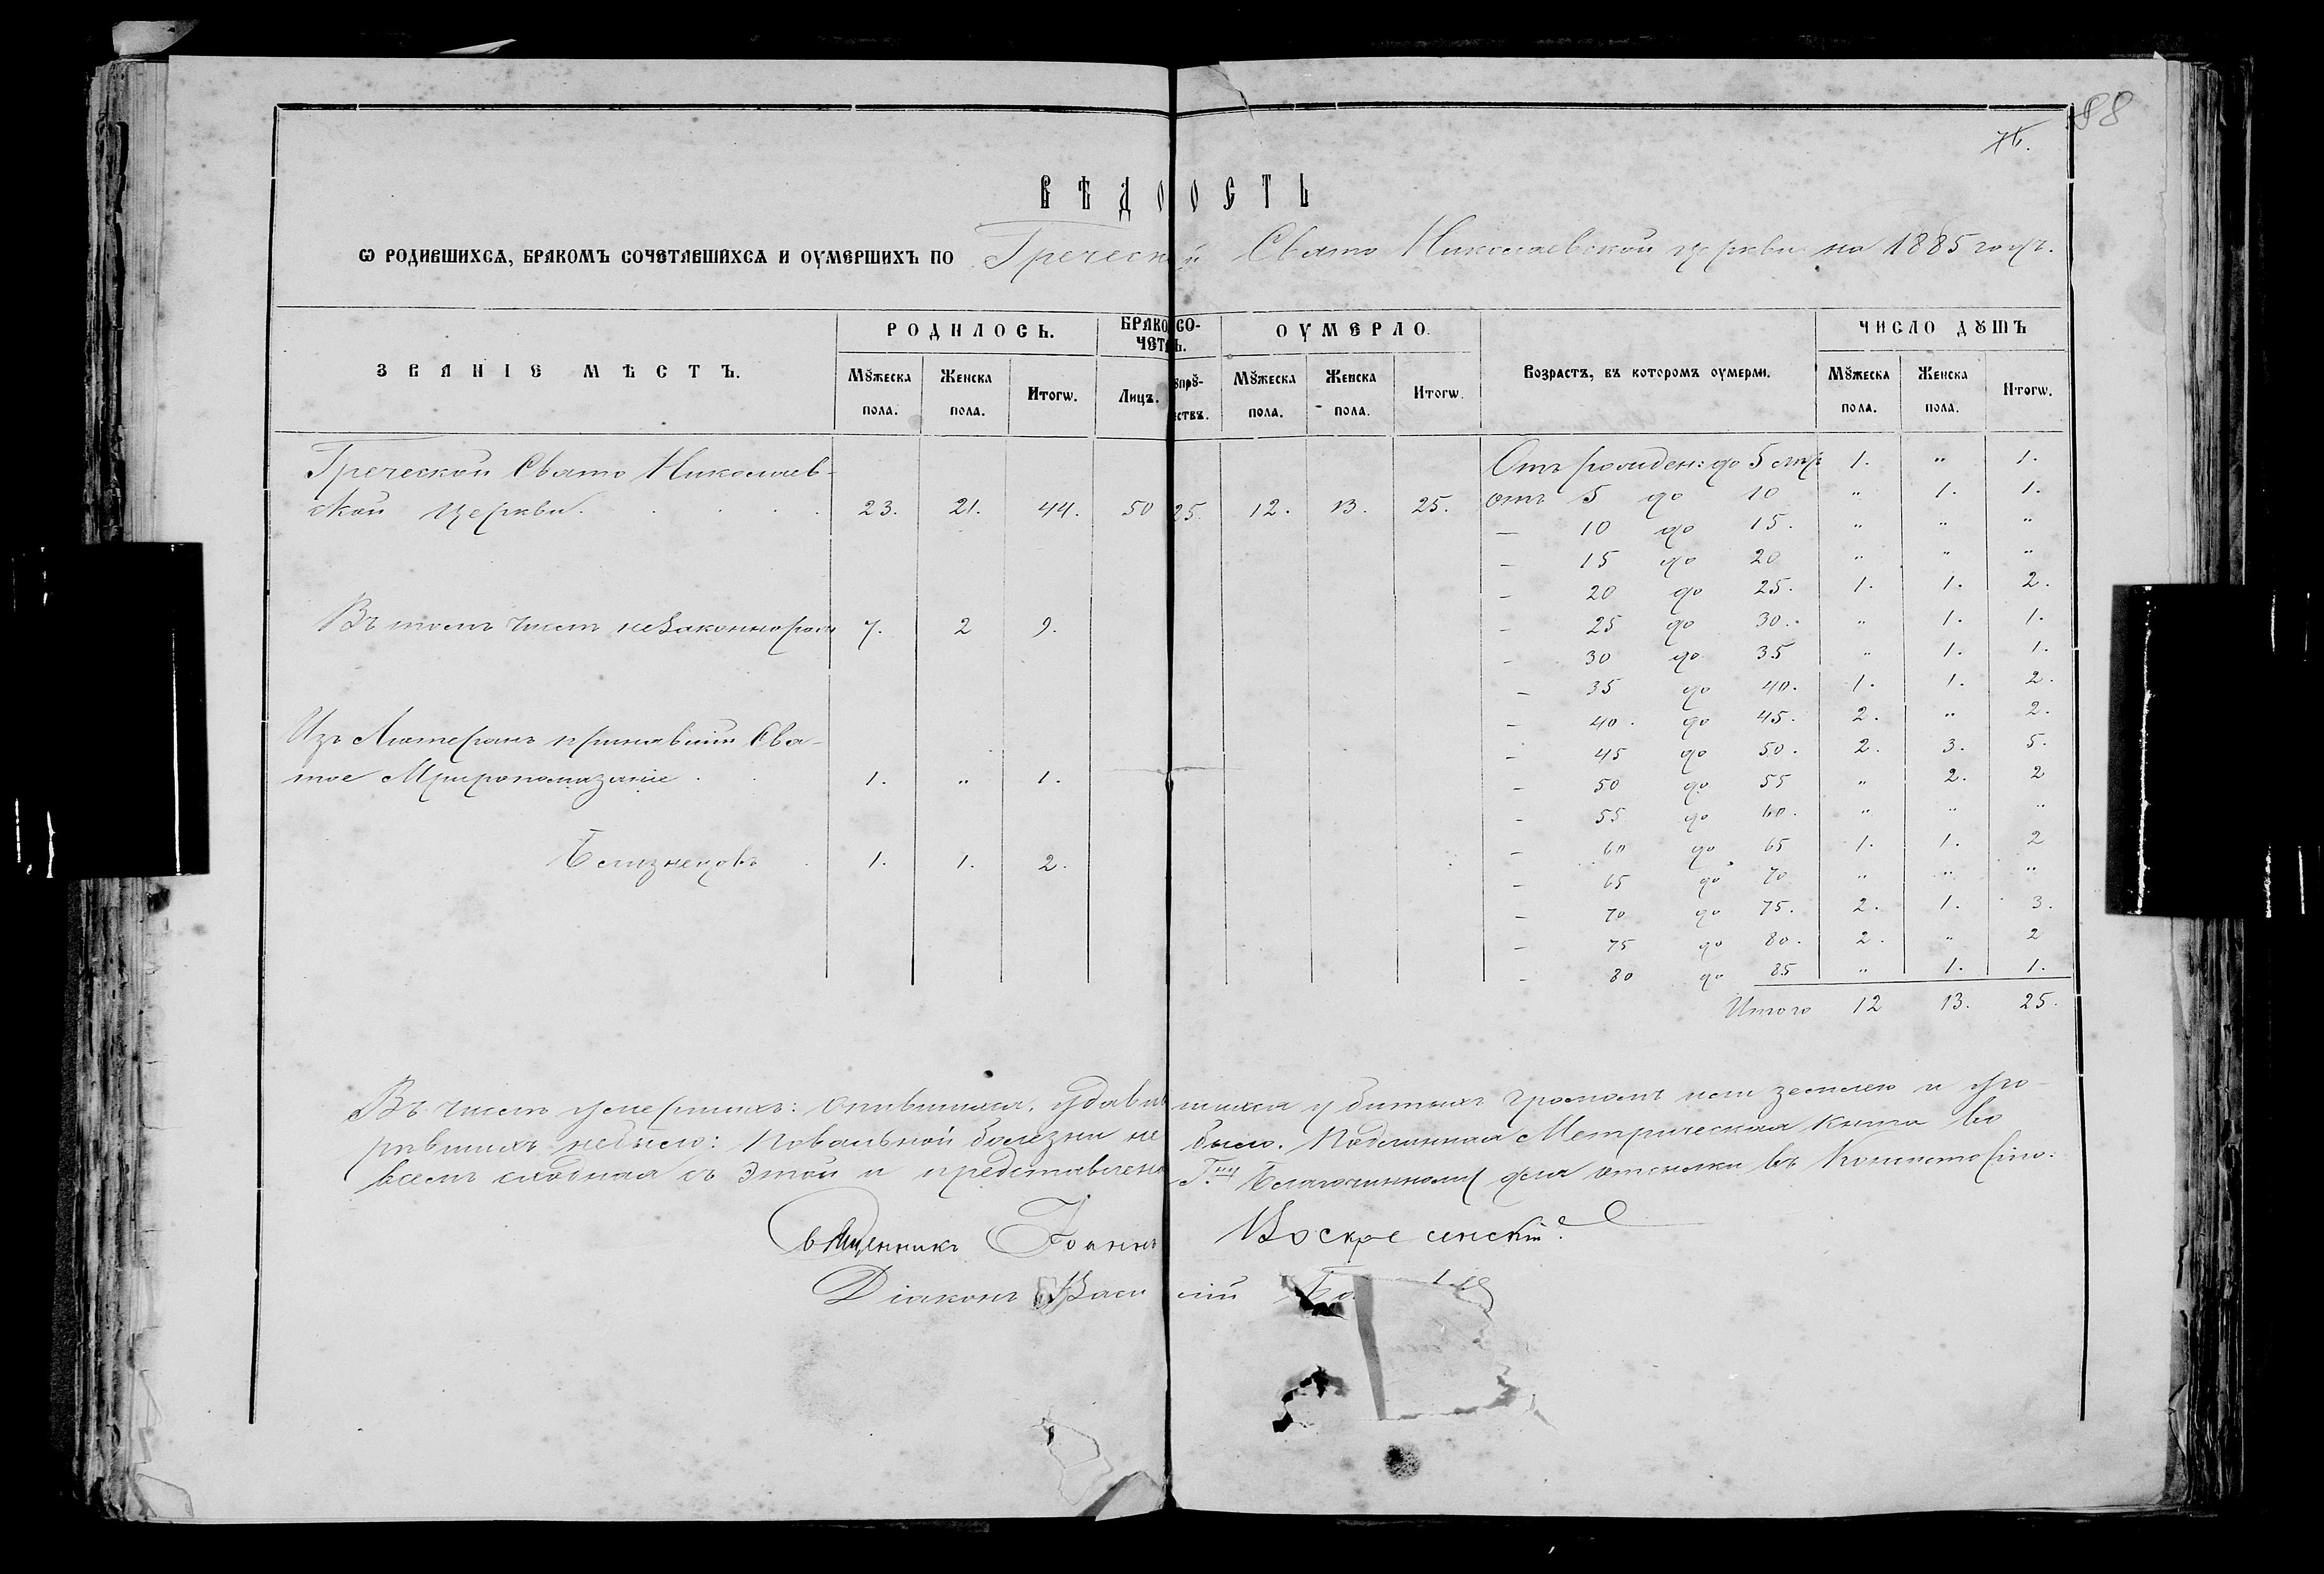 88
76.
ВѢДОМОСТЬ
Ѡ РОДИВШИХСѦ, БРАКОМЪ СОЧЕТАВШИХСѦ И ОУМЕРШИХЪ ПО Греческой Свято Николаевской церкви на 1885 годъ.
ЗВАНІЕ МѢСТЪ. РОДИЛОСЬ. БРАКОСО- ОУМЕРЛО. Возрастъ, въ которомъ оумерли. ЧИСЛО ДꙊШЪ
ЧЕТАЛ.
Мꙋжеска Женска Итогѡ. Лицъ. Мꙋжеска Женска Итогѡ. Мꙋжеска Женска Итогѡ.
пола. пола. пола. пола. пола. пола.
Греческой Свято Николаев-
ской церкви. 23. 21. 44. 50 25. 12. 13. 25.
Въ томъ числѣ незаконнорож 7. 2 9.
Изъ Лютеранъ принявшій Свя-
тое Мѵропомазаніе 1. " 1.
Близнецовъ 1. 1. 2.
Отъ рожден: до 5 1. " 1.
отъ 5 до 10 " 1. 1.
— 10 до 15. " " "
— 15 до 20 " " "
— 20 до 25. 1. 1. 2.
— 25 до 30. " 1. 1.
— 30 до 35 " 1. 1.
— 35 до 40. 1. 1. 2.
— 40. до 45. 2. " 2.
— 45 до 50. 2. 3. 5.
— 50 до 55 " 2. 2
— 55 до 60. " " "
— 60 до 65 1. 1. 2
— 65 до 70 " " "
— 70 до 75. 2. 1. 3.
— 75 до 80. 2. " 2
— 80 до 85 " 1. 1.
Итого 12 13. 25.
Въ числѣ умершихъ: опившихся, удавившихся убитыхъ громомъ или землею и уго-
рѣвшихъ небыло: Повальной болезни не было. Подлинная Метрическая книга во
всемъ сходная съ этой и представлена Г.ну Благочинному для отсылки въ Консисторію.
Священникъ Іоаннъ Воскресенскій
Діаконъ Василій